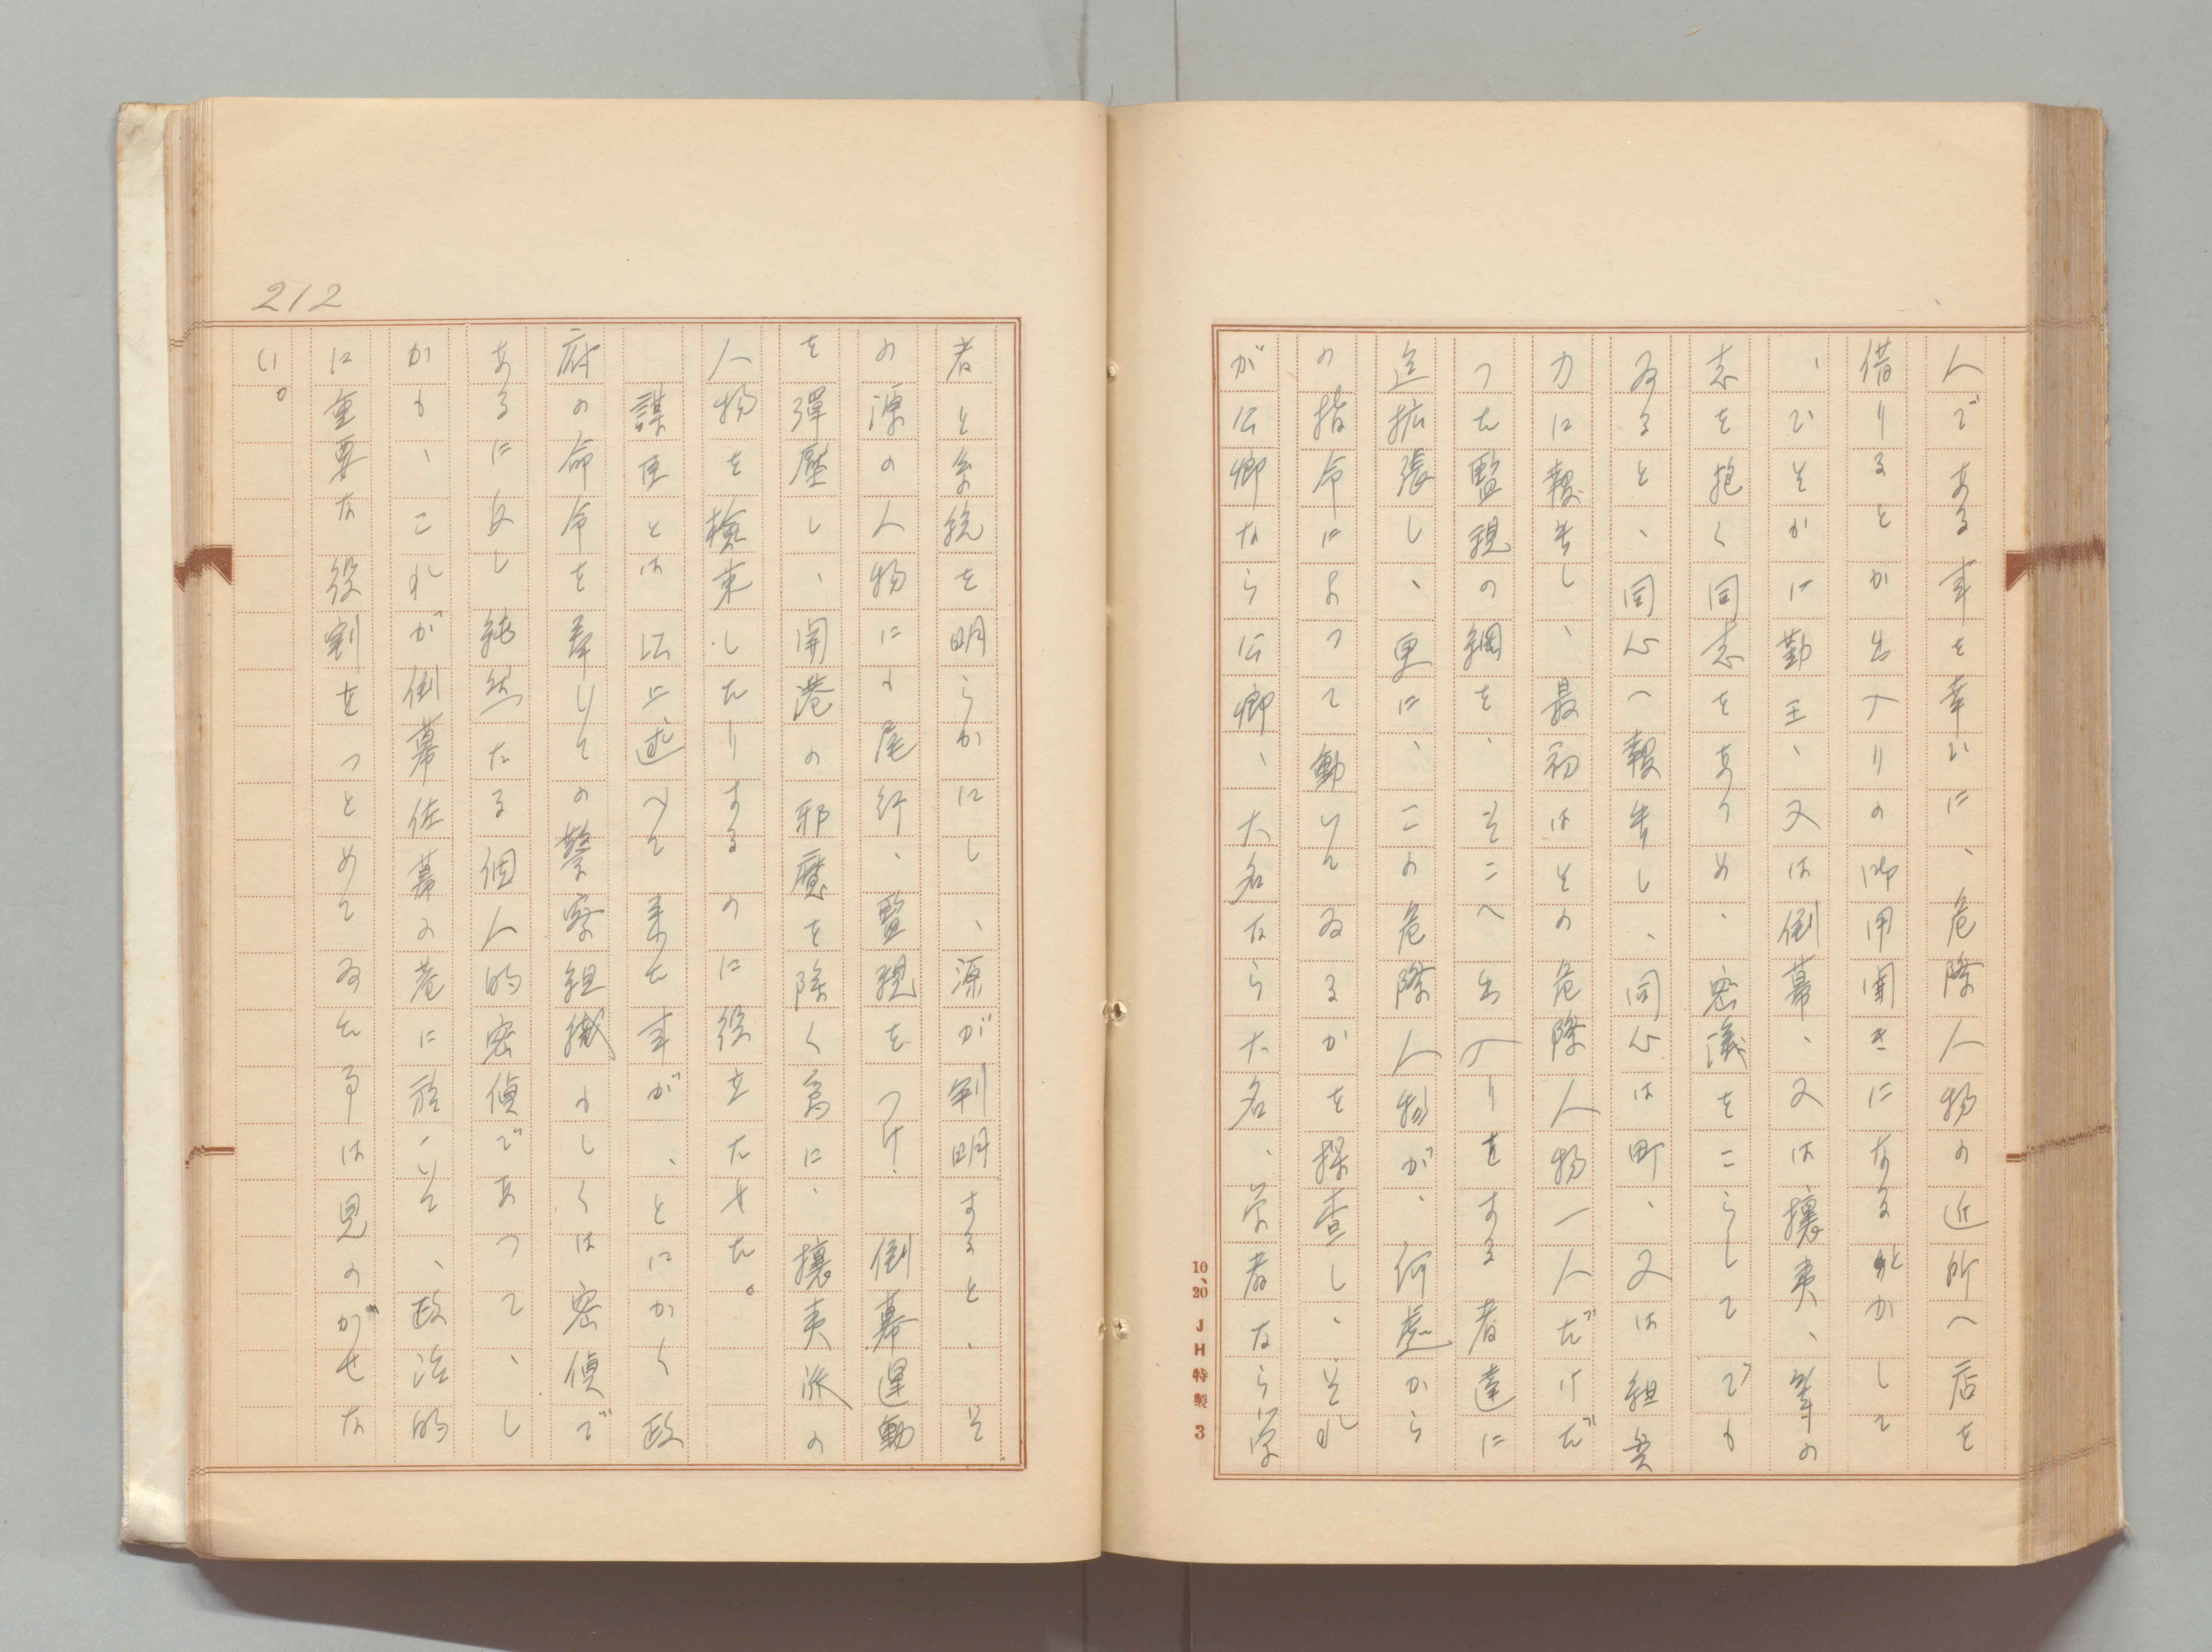 人である事を幸ひに、危険人物の近所へ店を
借りるとか出入りの御用聞きになるとかして
、ひそかに勤王、又は倒幕、又は攘夷、等の
志を抱く同志をあつめ、密議をこらしてでも
ゐると、同心へ報告し、同心は町、又は組与
力に報告し、最初はその危険人物一人だけだ
つた監視の網を、そこへ出入りをする者達に
迄拡張し、更に、この危険人物が、何処から
の指令によつて動いてゐるかを探査し、それ
が公卿なら公卿、大名なら大名、学者なら学
10、20 JH特製 3
者と系統を明らかにし、源が判明すると、そ
の源の人物にも尾行、監視をつけ、倒幕運動
を弾壓し、開港の邪魔を除く為に、攘夷派の
人物を検束したりするのに役立たせた。
謀吏とは公に述べて来た事が、とにかく政
府の命令を奉じての警察組織もしくは密偵で
あるに反し純然たる個人的密偵であつて、し
かも、これが倒幕佐幕の巷に於いて、政治的
に重要な役割をつとめてゐた事は見のがせな
い。
212